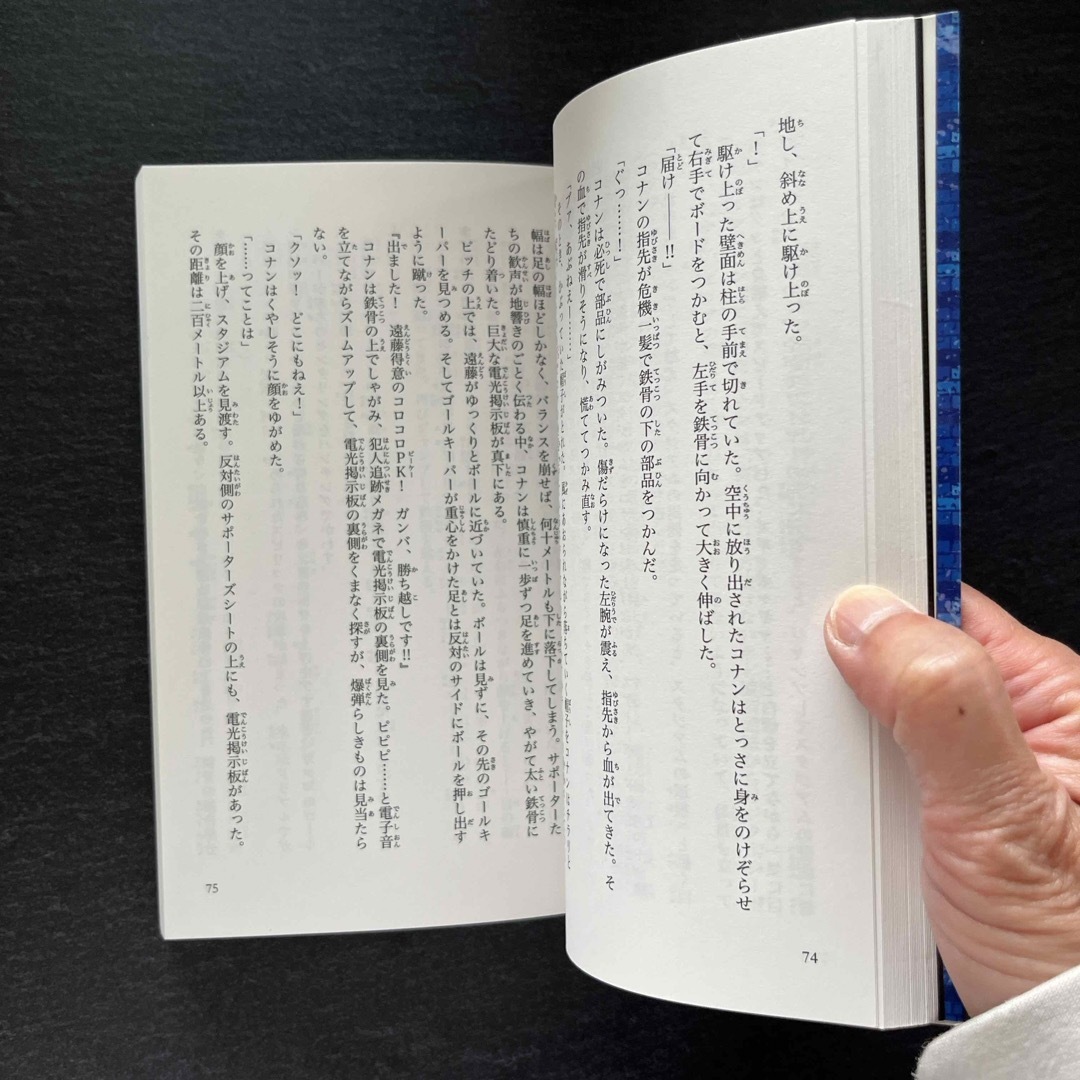 地し、斜め上に駆け上った。
「！」
駆け上った壁面は柱の手前で切れていた。空中に放り出されたコナンはとっさに身をのけぞらせ
て右手でボードをつかむと、左手を鉄骨に向かって大きく伸ばした。
「届け――!!」
コナンの指先が危機一髪で鉄骨の下の部品をつかんだ。
「ぐっ……！」
コナンは必死で部品にしがみついた。傷だらけになった左腕が震え、指先から血が出てきた。そ
の血で指先が滑りそうになり、慌ててつかみ直す。
あぶねえ……」
74
幅は足の幅ほどしかなく、バランスを崩せば、何十メートルも下に落下してしまう。サポーターた
ちの歓声が地響きのごとく伝わる中、コナンは慎重に一歩ずつ足を進めていき、やがて太い鉄骨に
たどり着いた。巨大な電光掲示板が真下にある。
ピッチの上では、遠藤がゆっくりとボールに近づいていた。ボールは見ずに、その先のゴールキ
ーパーを見つめる。そしてゴールキーパーが重心をかけた足とは反対のサイドにボールを押し出す
ように蹴った。
『出ました！　遠藤得意のコロコロPK！　ガンバ、勝ち越しです!!』
コナンは鉄骨の上でしゃがみ、犯人追跡メガネで電光掲示板の裏側を見た。ピピピ……と電子音
を立てながらズームアップして、電光掲示板の裏側をくまなく探すが、爆弾らしきものは見当たら
ない。
「クソッ！　どこにもねえ！」
コナンはくやしそうに顔をゆがめた。
「……ってことは」
顔を上げ、スタジアムを見渡す。反対側のサポーターズシートの上にも、電光掲示板があった。
その距離は二百メートル以上ある。
75